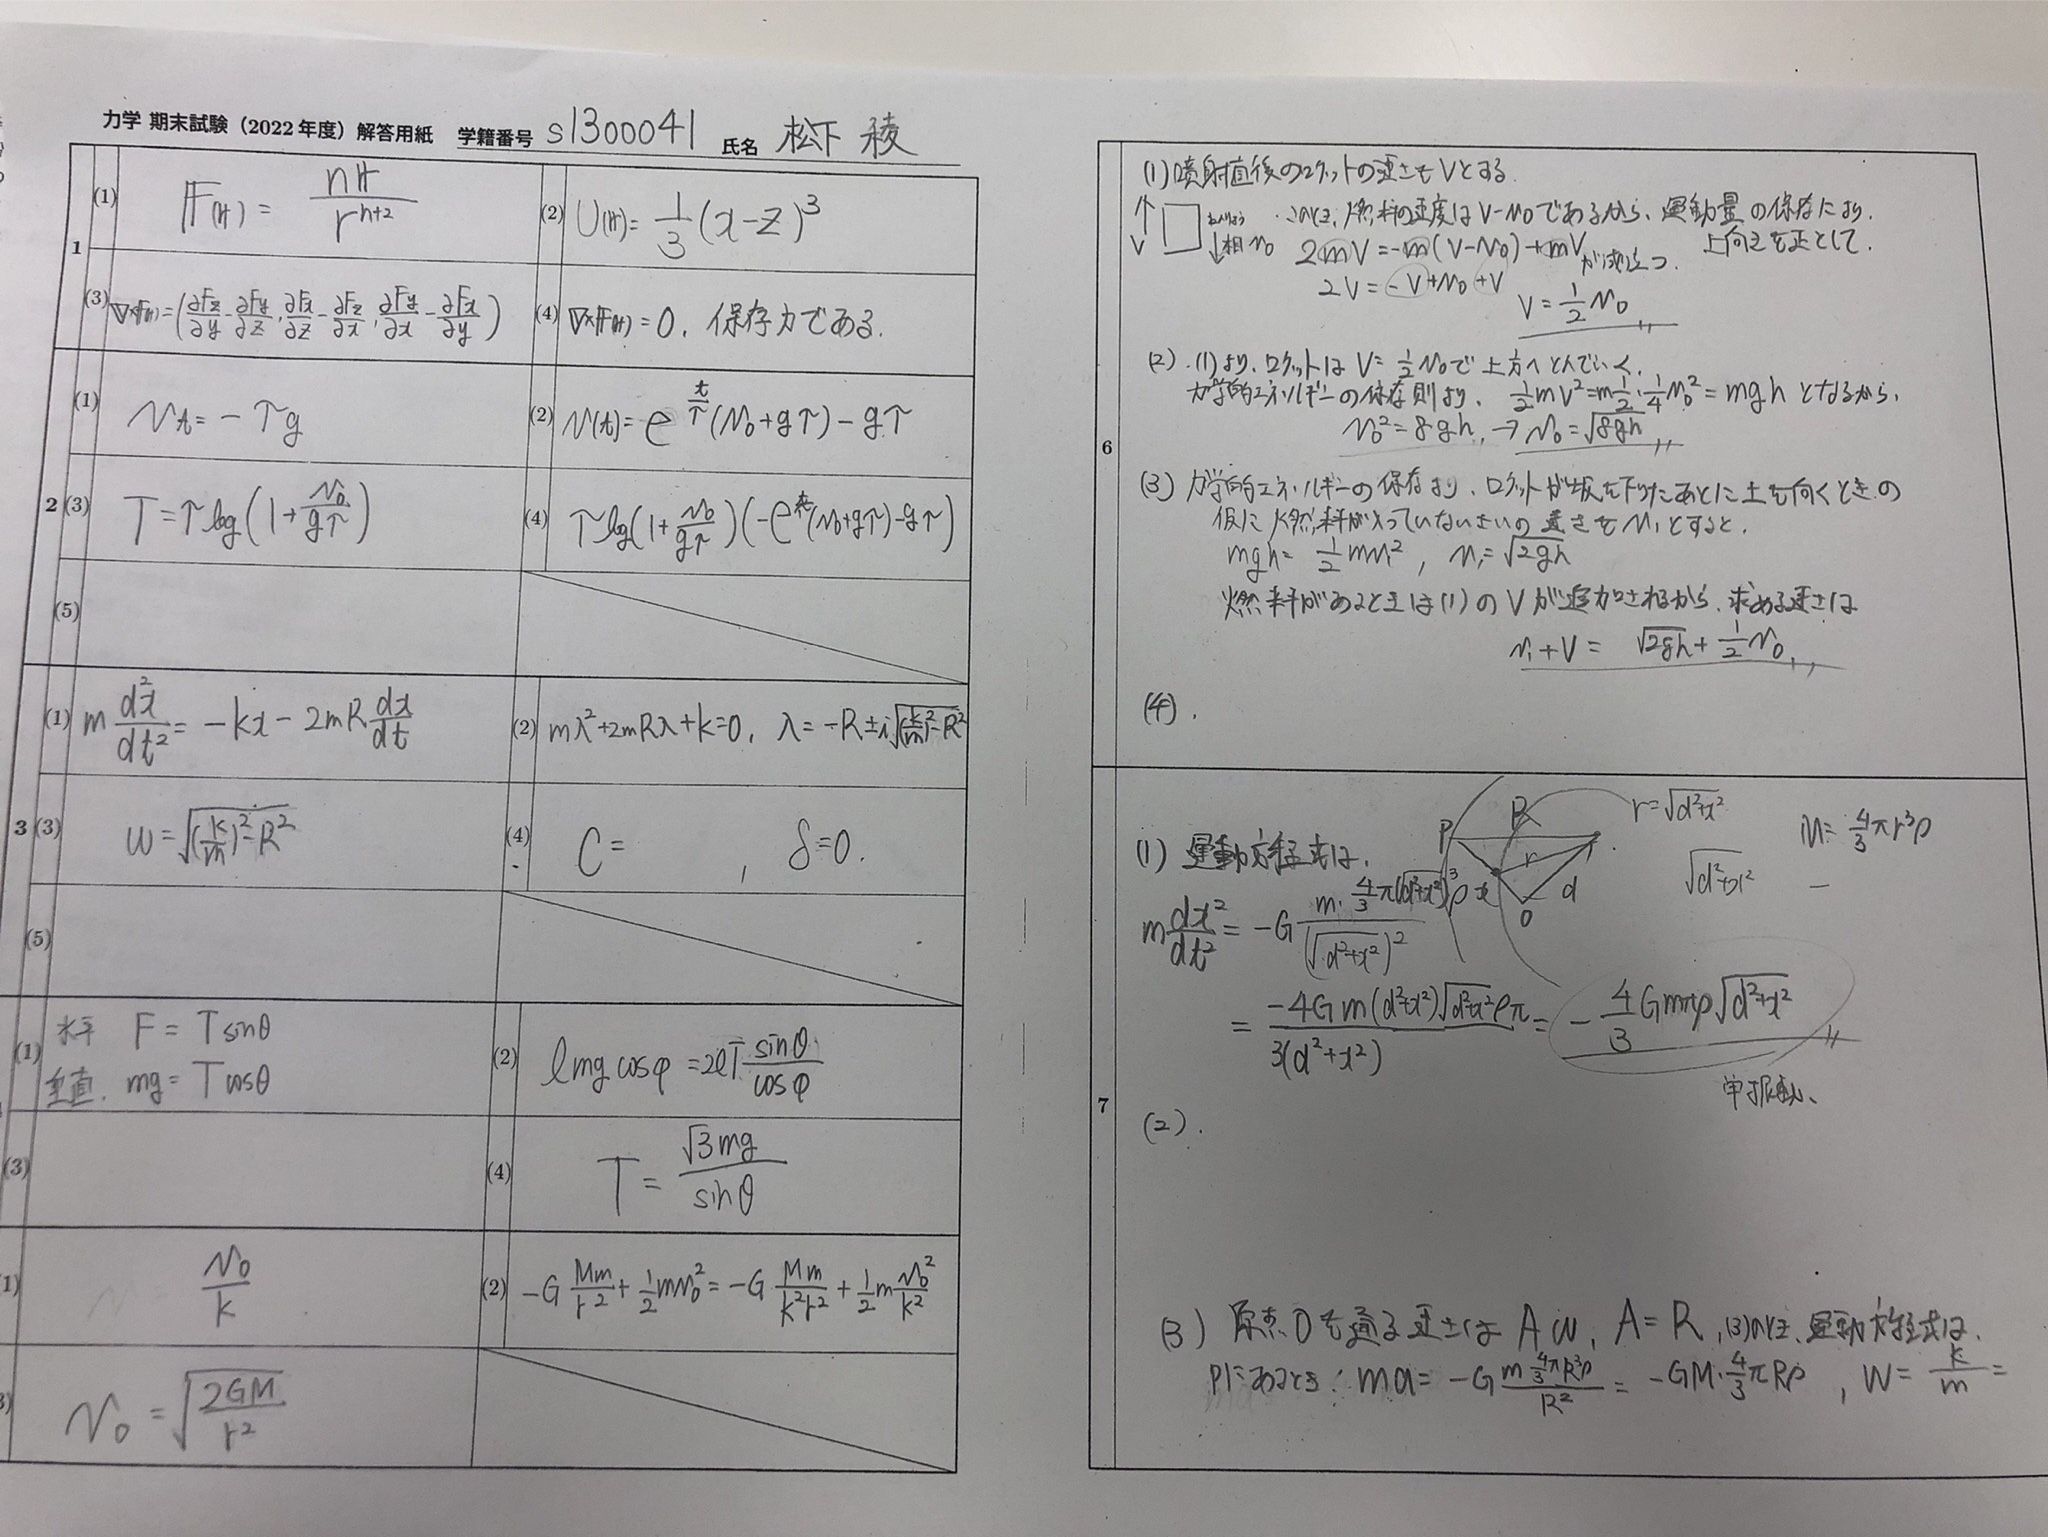 力学 期末試験（2022年度）解答用紙 学籍番号 s1300041 氏名 松下 稜
1
(1) F(r) = nr / r^{n+2}
(2) U(r) = 1/3 (x-z)^3
(3) ∇×F(r) = (∂Fz/∂y - ∂Fy/∂z, ∂Fx/∂z - ∂Fz/∂x, ∂Fy/∂x - ∂Fx/∂y)
(4) ∇×F(r) = 0. 保存力である.
2
(1) vt = -τg
(2) v(t) = e^{t/τ}(v0+gτ) - gτ
(3) T = τlog(1+v0/gτ)
(4) τlog(1+v0/gτ)(-e^{t/τ}(v0+gτ)-gτ)
(5)
3
(1) m d²x/dt² = -kx - 2mR dx/dt
(2) mλ²+2mRλ+k=0, λ = -R ± i√((k/m)²-R²)
(3) ω = √((k/m)²-R²)
(4) C = , δ=0.
(5)
(1) 水平 F = T sinθ
垂直. mg = T cosθ
(2) lmg cosφ = 2lT sinθ/cosφ
(3)
(4) T = √3mg / sinθ
1) v0/k
(2) -G Mm/r² + 1/2 mv0² = -G Mm/k²r² + 1/2 m v0²/k²
3) v0 = √(2GM/r²)
6
(1) 噴射直後のロケットの速さをVとする.
V 相 v0
このとき、燃料の速度はV-v0であるから、運動量の保存により.
上向きを正として.
2mV = -m(V-v0)+mV が成立つ.
2V = -V+v0+V
V = 1/2 v0
(2) .(1)より、ロケットは V = 1/2 v0で上方へとんでいく.
力学的エネルギーの保存則より、 1/2 mV² = m 1/2・1/4 v0² = mgh となるから、
v0² = 8gh, → v0 = √8gh
(3) 力学的エネルギーの保存より、ロケットが坂を下りたあとに上を向くときの
仮に燃料が入っていないさいの速さをv1とすると.
mgh = 1/2 mv1², v1 = √2gh
燃料があるときは(1)のVが追加されるから、求める速さは
v1+V = √2gh + 1/2 v0
(4).
7
P R r=√d²+x² M = 4/3 πr³ρ
(1) 運動方程式は、
x r d O √d²+x² −
m dx²/dt² = -G m・4/3 π(√d²+x²)³ρ / (√d²+x²)²
= -4Gm(d²+x²)√d²+x² ρπ / 3(d²+x²) = -4/3 Gmπρ√d²+x²
単振動、
(2).
(3) 原点Oを通る速さは Aω, A=R, (3)のとき、運動方程式は.
Pにあるとき: ma = -G m 4/3 πR³ρ / R² = -GM・4/3 πRρ , ω = k/m =